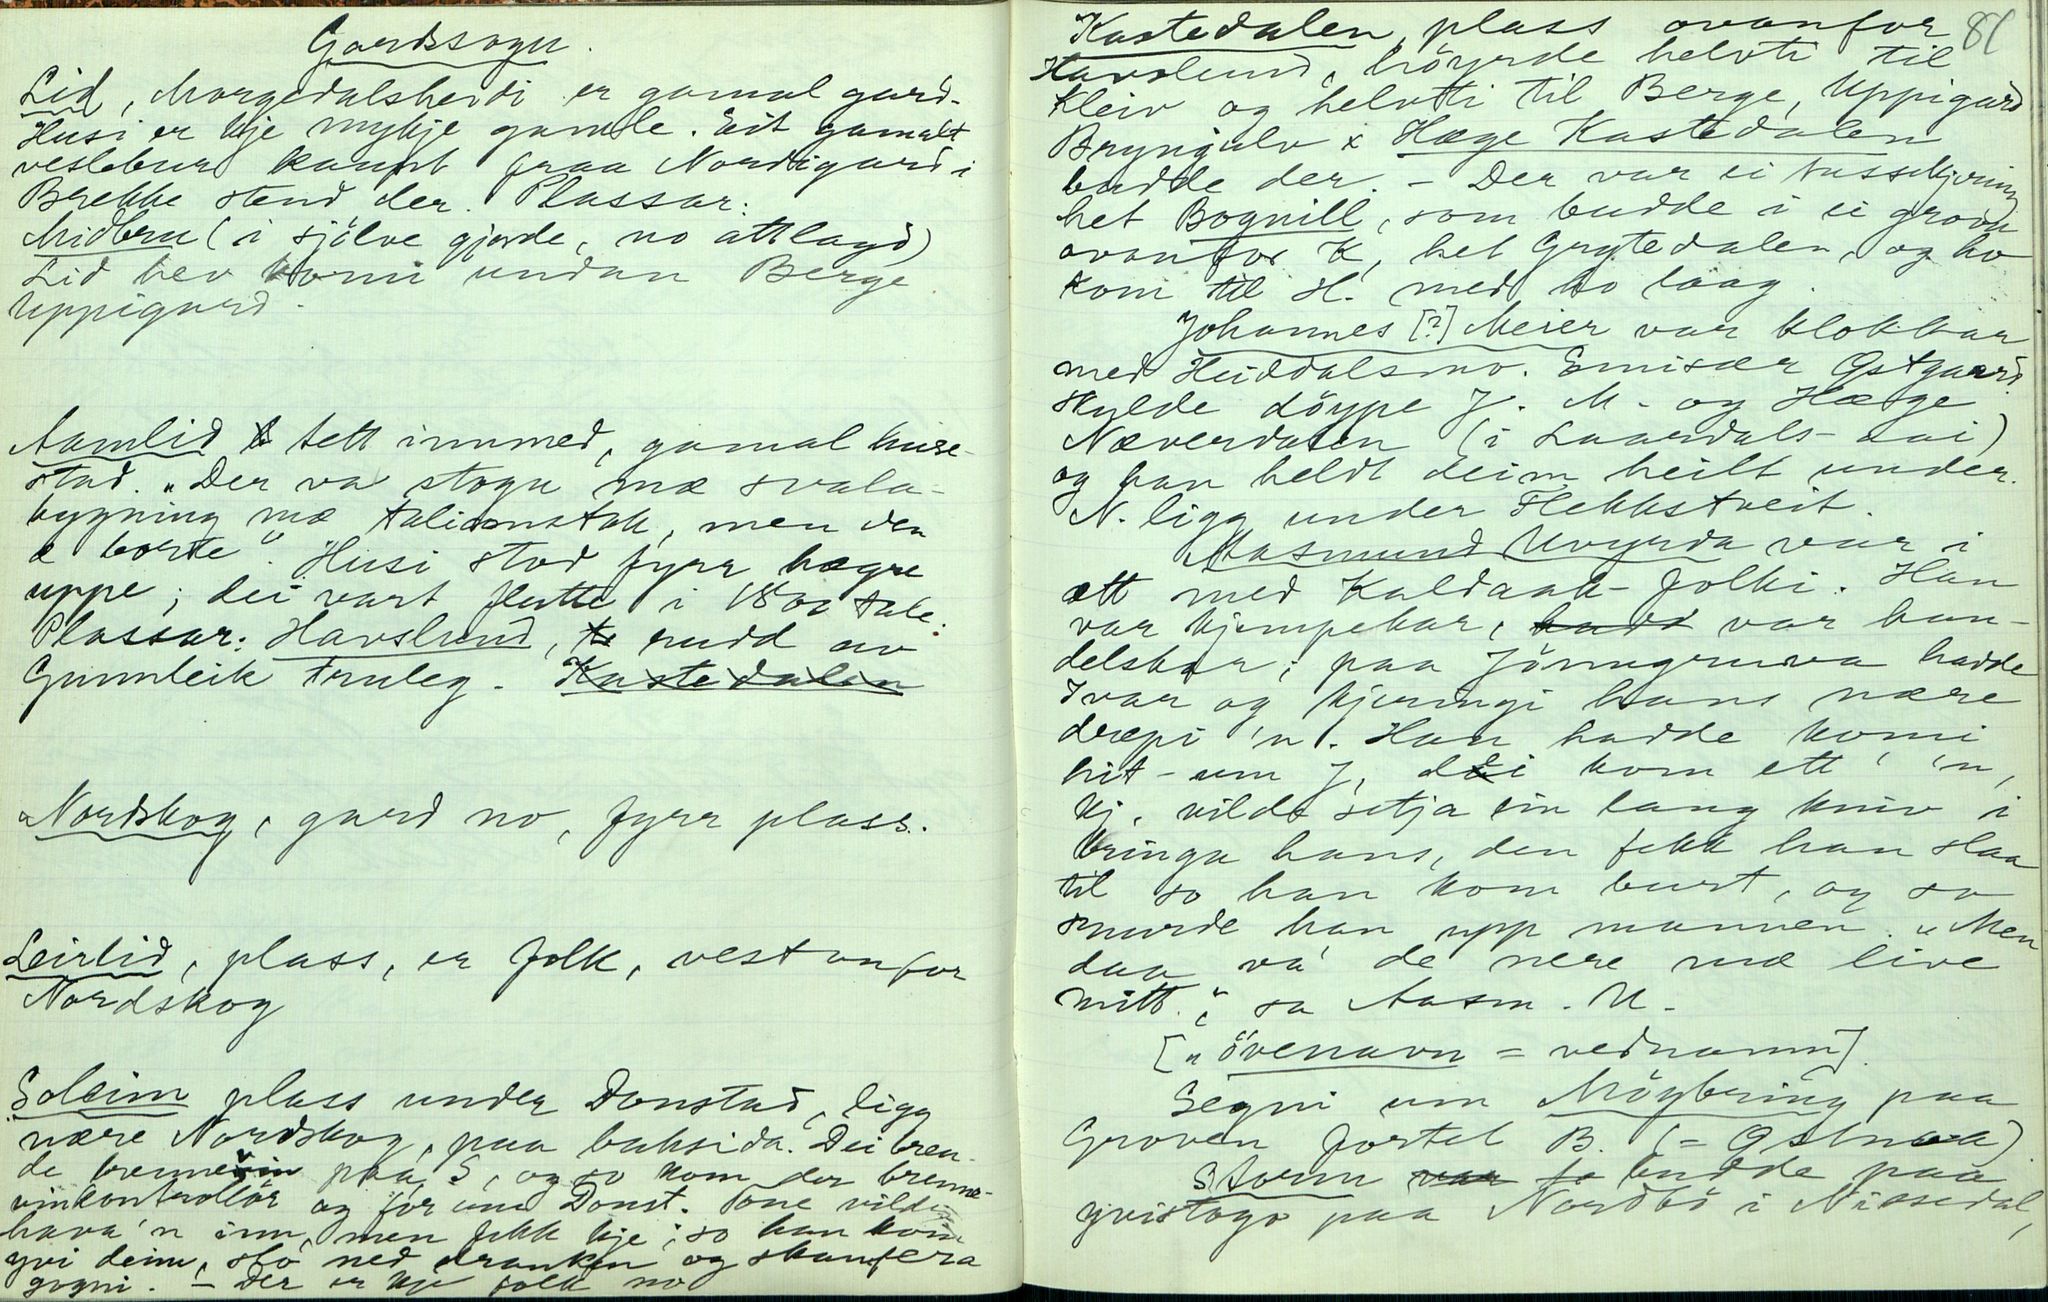 Gardssogu.
Lid, Morgedalsheidi er gamal gard.
Husi er kje mykje gamle. Eit gamalt
veslebur kaupt fraa Nordigard i
Brekke stend der. Plassar:
Midbru (i sjölve gjerde, no attlagd)
Lid hev komi undan Berge
Uppigard.
Aamlid tett innmed, gamal huse-
stad. "Der va stogu mæ svala-
bygning mæ talimstak, men den
æ borte". Husi stod fyrr högre
uppe; dei vart flutte i 1800 tale.
Plassar: Havslund, rudd av
Gunnleik truleg. Kastedalen
Nordskog, gard no, fyrr plass.
Leirlid, plass, er folk, vestanfor
Nordskog
Soleim plass under Donstad, ligg
nære Nordskog, paa baksida. Dei bren-
de brennevin paa S, og so kom der brenne-
vinkontrollör og for um Donst. Tone vilde
hava 'n inn, men fekk kje; so han kom
yvi deim, slo ned dranken og skamfera
gogni. - Der er kje folk no
81
Kastedalen, plass ovanfor
Havslund, höyrde helvti til
Kleiv og helvti til Berge, Uppigard
Bryngulv x Hæge Kastedalen
budde der. - Der var ei tussekjering
het Bognill, som budde i ei grovu
ovanfor K, het Grytedalen, og ho
kom til H. med ho laag.
Johannes [?] Meier var klokkar
med Heiddalsmo. Emisær Ostgaard
skulde döype J. M. og Hæge
Næverdalen (i Laardals-aai)
og han heldt deim heilt under.
N. ligg under Flekkstveit.
Aasmund Uvyrda var i
ætt med Kaldaak-folki. Han
var kjempekar, hadde var han-
delskar; paa Jönngruva hadde
Ivar og kjeringi hans nære
drepi 'n. Han hadde komi
hit-um J, dei kom ett 'n,
Kj. vilde setja ein lang kniv i
bringa hans, den fekk han slaa
til so han kom burt, og so
snurde han upp mannen. "Men
daa va' de nere mæ live
mitt.", sa Aasm. U.
["övenavn" = vednamn].
Segni um Möybering paa
Groven fortel B. (= Ostnaa)
Storm var budde paa
yvistogo paa Nordbö i Nissedal,